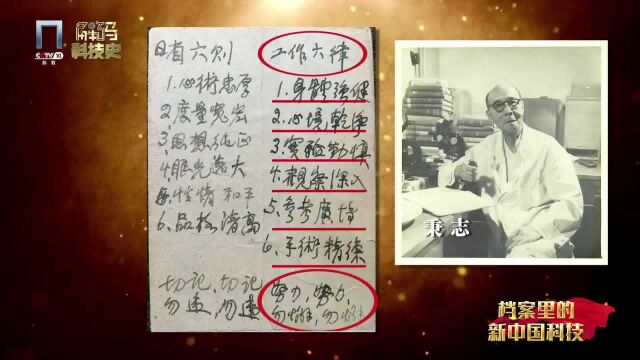 CCTV 10
科教
解码
科技史
日省六则
1.心術忠厚
2.度量宽宏
3.思想纯正
4.眼光遠大
5.性情和平
6.品格清高
切记,切记
勿違,勿違
工作六律
1.身體強健
2.心境乾净
3.實驗勤慎
4.觀察深入
5.參考廣博
6.手術精練
努力,努力,
勿懈,勿懈
秉志
档案里的
新中国科技